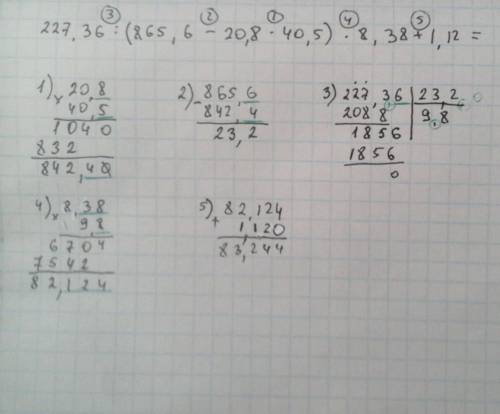 ③ ② ① ④ ⑤
227,36 : (865,6 - 20,8 · 40,5) · 8,38 + 1,12 =
1) × 20,8
40,5
1040
832
842,40
2) - 865,6
842,4
23,2
3) 227,36 | 23,2
2088 | 9,8
1856
1856
0
4) × 8,38
9,8
6704
7542
82,124
5) + 82,124
1,120
83,244